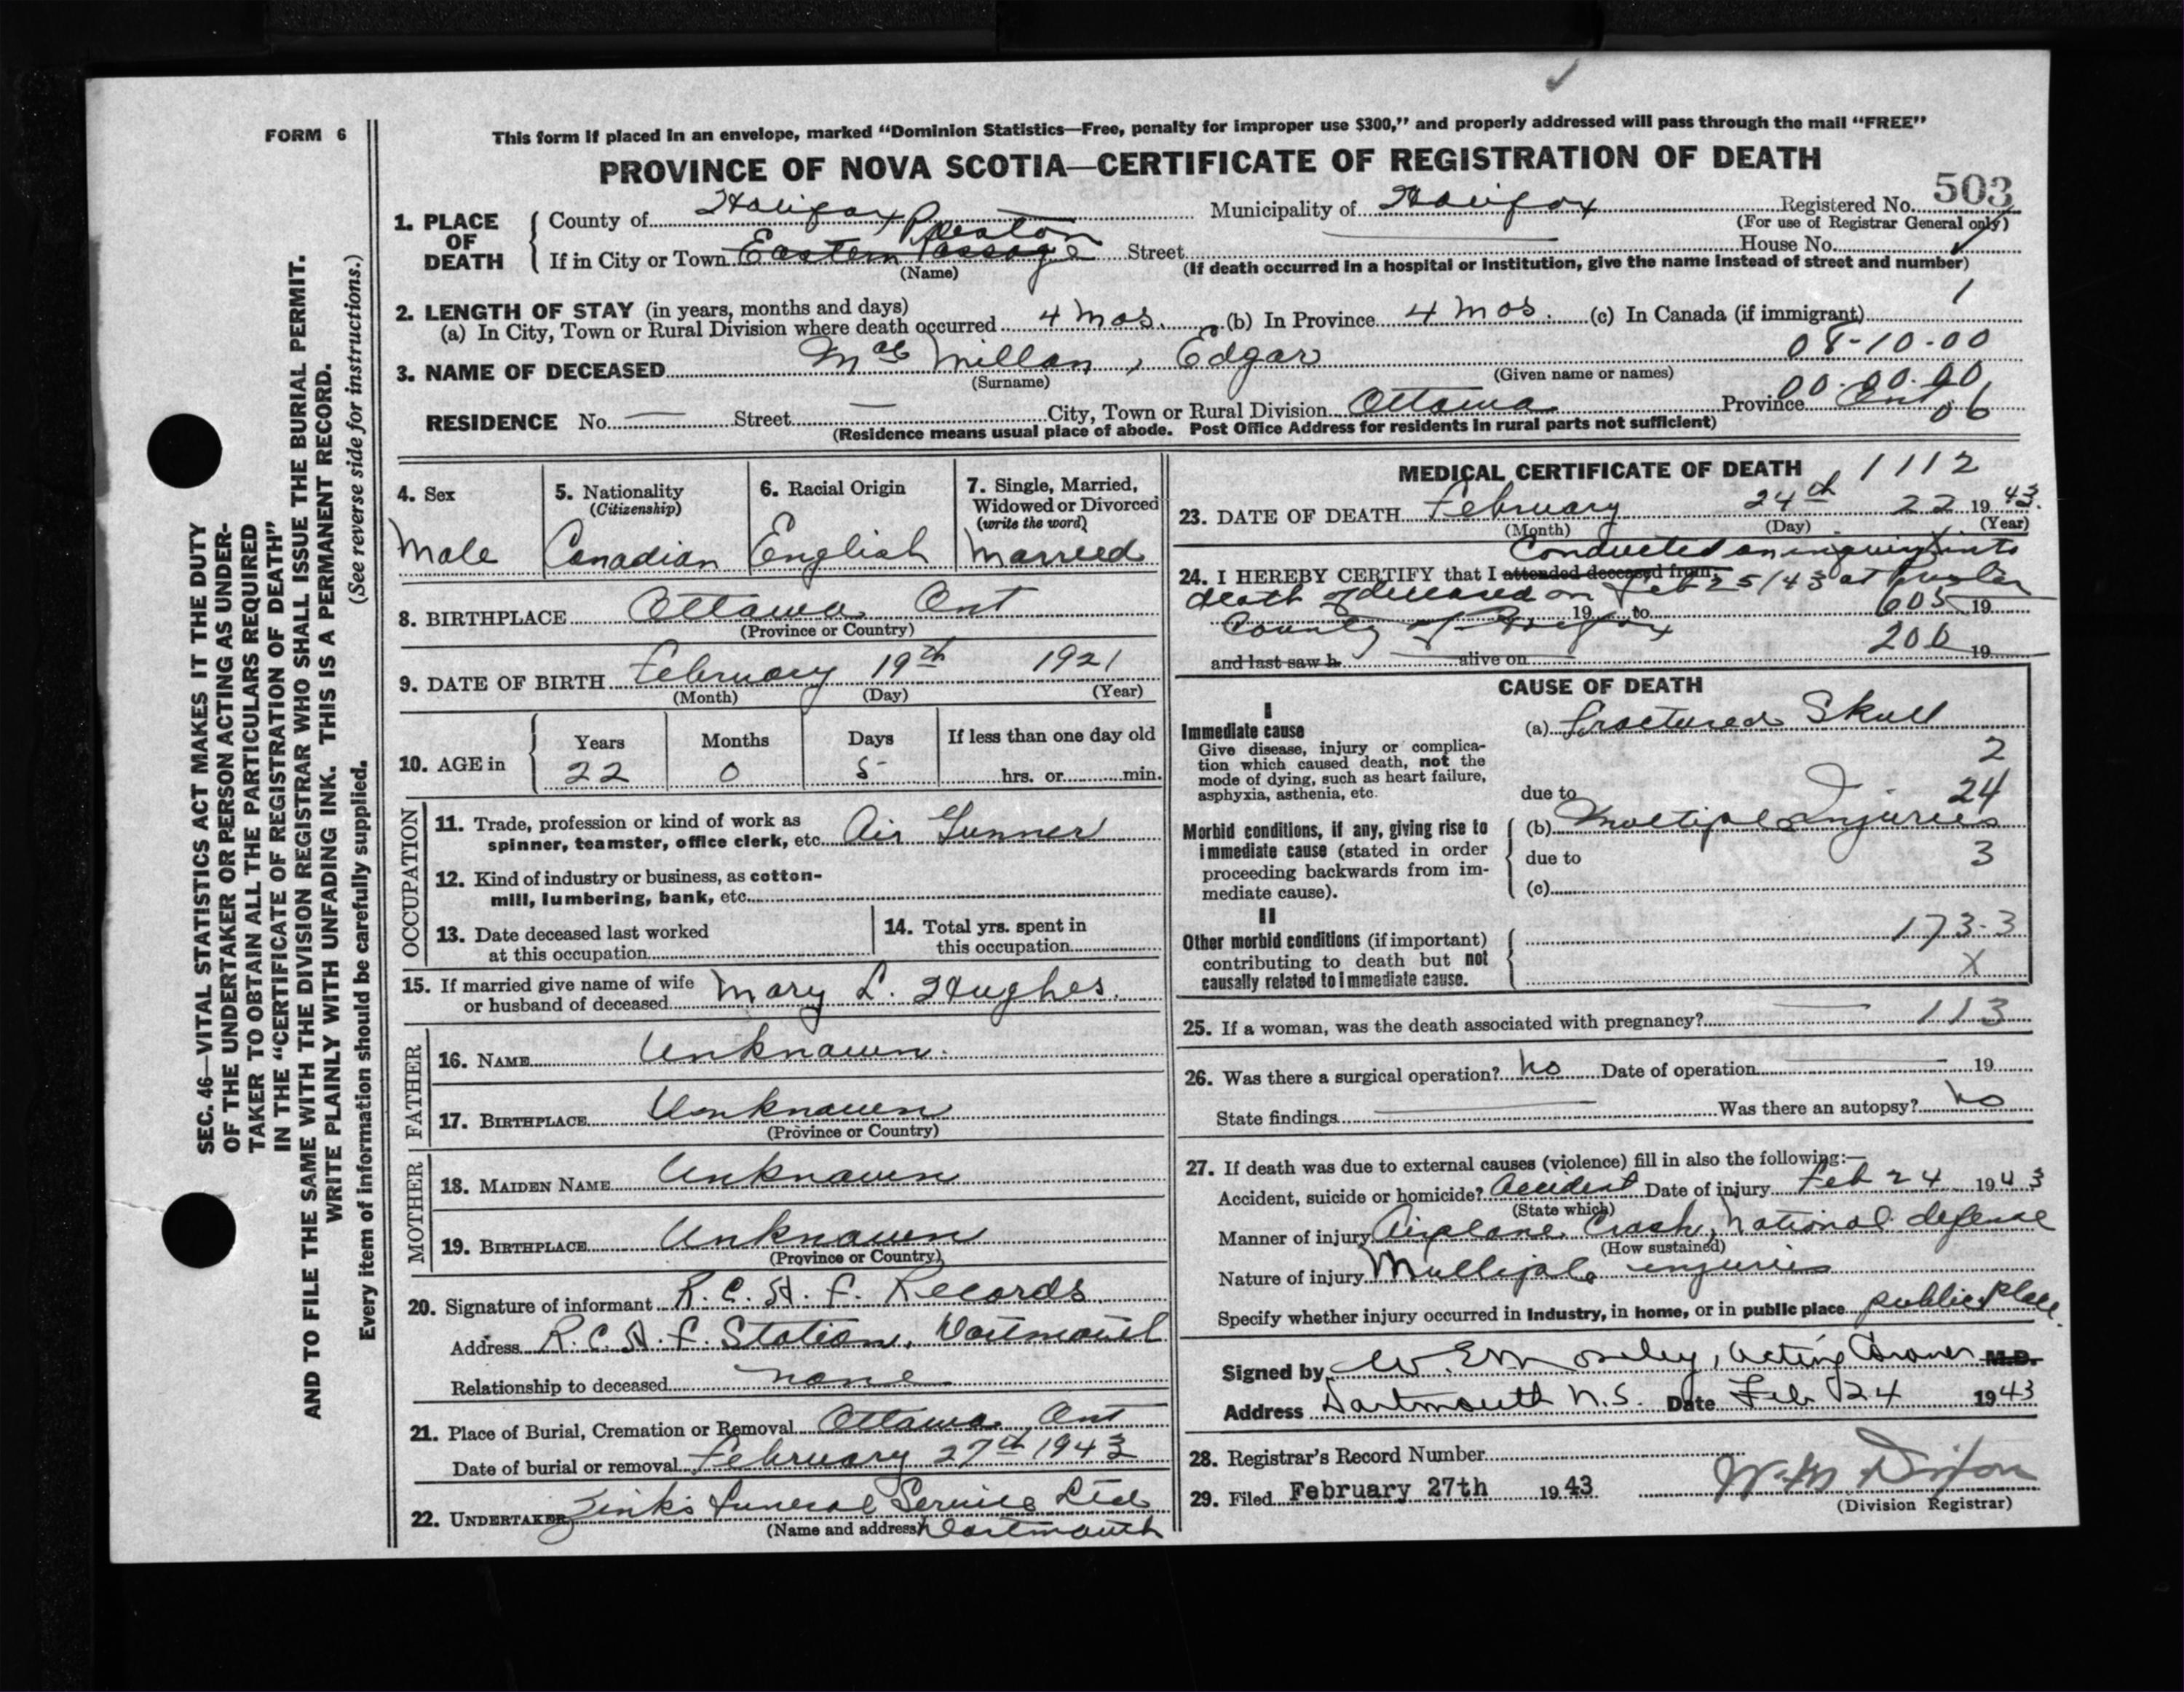 FORM 6
This form if placed in an envelope, marked “Dominion Statistics—Free, penalty for improper use $300,” and properly addressed will pass through the mail “FREE”
PROVINCE OF NOVA SCOTIA—CERTIFICATE OF REGISTRATION OF DEATH
503
1. PLACE OF DEATH County of Halifax Municipality of Halifax Registered No.
(For use of Registrar General only)
Preston
If in City or Town Eastern Passage Street House No.
(Name) (If death occurred in a hospital or institution, give the name instead of street and number)
2. LENGTH OF STAY (in years, months and days) 1
(a) In City, Town or Rural Division where death occurred 4 mos. (b) In Province 4 mos. (c) In Canada (if immigrant)
08-10-00
3. NAME OF DECEASED MacMillan, Edgar
(Surname) (Given name or names)
00.00.00
RESIDENCE No. — Street — City, Town or Rural Division Ottawa Province Ont. 06
(Residence means usual place of abode. Post Office Address for residents in rural parts not sufficient)
4. Sex 5. Nationality (Citizenship) 6. Racial Origin 7. Single, Married, Widowed or Divorced (write the word)
Male Canadian English Married
8. BIRTHPLACE Ottawa Ont
(Province or Country)
9. DATE OF BIRTH February 19th 1921
(Month) (Day) (Year)
10. AGE in Years Months Days If less than one day old
22 0 5 hrs. or min.
OCCUPATION
11. Trade, profession or kind of work as
spinner, teamster, office clerk, etc. Air Gunner
12. Kind of industry or business, as cotton-
mill, lumbering, bank, etc.
13. Date deceased last worked
at this occupation
14. Total yrs. spent in
this occupation
15. If married give name of wife
or husband of deceased Mary L. Hughes.
FATHER
16. NAME Unknown.
17. BIRTHPLACE Unknown
(Province or Country)
MOTHER
18. MAIDEN NAME Unknown
19. BIRTHPLACE Unknown
(Province or Country)
20. Signature of informant R. C. A. F. Records
Address R. C. A. F. Station, Dartmouth
Relationship to deceased none
21. Place of Burial, Cremation or Removal Ottawa Ont
Date of burial or removal February 27th 1943
22. UNDERTAKER Zink's Funeral Service Ltd
(Name and address) Dartmouth
MEDICAL CERTIFICATE OF DEATH 1112
23. DATE OF DEATH February 24th 22 1943.
(Month) (Day) (Year)
Conducted an inquiry into
24. I HEREBY CERTIFY that I attended deceased from
death of deceased on Feb 25/43 at
19 to 605 19
County of Halifax
and last saw h alive on 206 19
CAUSE OF DEATH
I
Immediate cause
Give disease, injury or complica-
tion which caused death, not the
mode of dying, such as heart failure,
asphyxia, asthenia, etc.
(a) Fractured Skull
2
due to 24
Morbid conditions, if any, giving rise to
immediate cause (stated in order
proceeding backwards from im-
mediate cause).
(b) Multiple Injuries
due to 3
(c)
II
Other morbid conditions (if important)
contributing to death but not
causally related to immediate cause.
173-3
X
25. If a woman, was the death associated with pregnancy? — 113
26. Was there a surgical operation? No Date of operation — 19
State findings — Was there an autopsy? No
27. If death was due to external causes (violence) fill in also the following:—
Accident, suicide or homicide? Accident Date of injury Feb 24 1943
(State which)
Manner of injury Airplane Crash, National defense
(How sustained)
Nature of injury Multiple injuries
Specify whether injury occurred in Industry, in home, or in public place public place.
Signed by W. E. M Oseley, Acting Coroner M.D.
Address Dartmouth N.S. Date Feb 24 1943
28. Registrar's Record Number
29. Filed February 27th 1943 W. M. Dixon
(Division Registrar)
SEC. 46—VITAL STATISTICS ACT MAKES IT THE DUTY
OF THE UNDERTAKER OR PERSON ACTING AS UNDER-
TAKER TO OBTAIN ALL THE PARTICULARS REQUIRED
IN THE “CERTIFICATE OF REGISTRATION OF DEATH”
AND TO FILE THE SAME WITH THE DIVISION REGISTRAR WHO SHALL ISSUE THE BURIAL PERMIT.
WRITE PLAINLY WITH UNFADING INK. THIS IS A PERMANENT RECORD.
Every item of information should be carefully supplied. (See reverse side for instructions.)